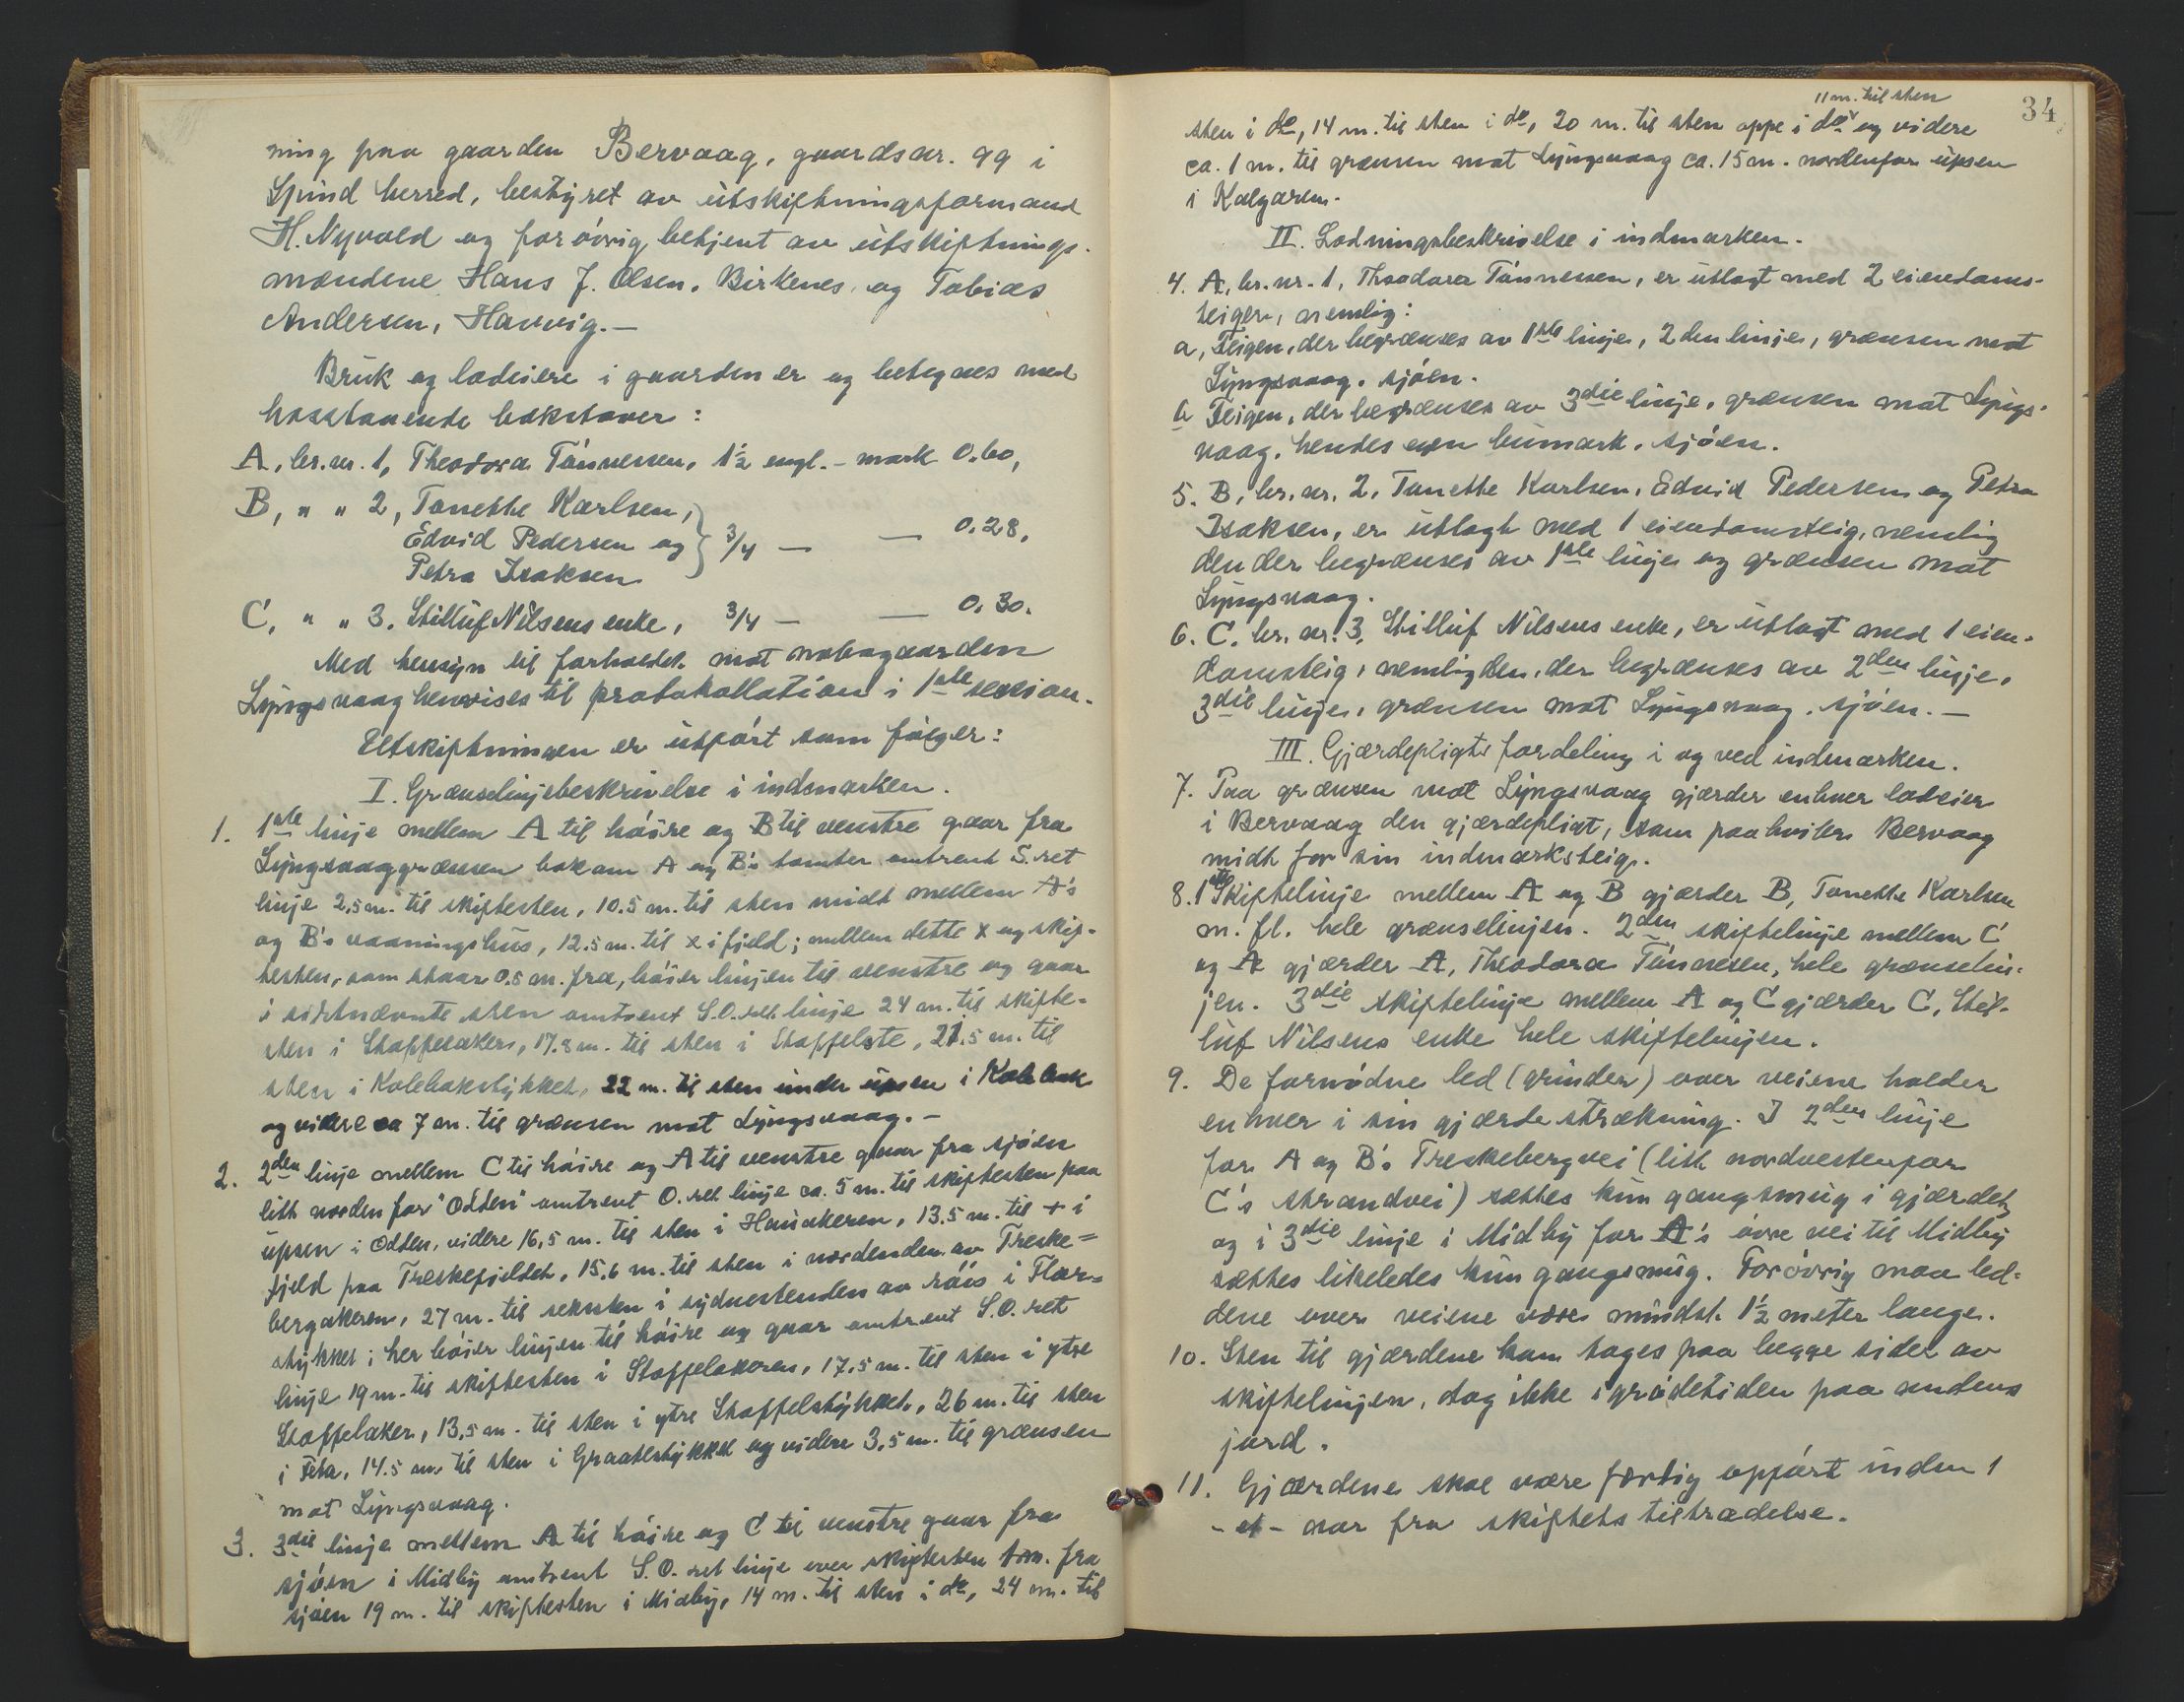 ning paa gaarden Bervaag, gaardsnr. 99 i
Spind herred, bestyret av utskiftningsformand
H. Nyvold og forøvrig betjent av utskiftnings-
mændene Hans J. Olsen, Birkenes, og Tobias
Andersen, Havvig.—
Bruk og lodeiere i gaarden er og betegnes med
hosstaaende bokstaver:
A, br. nr. 1, Theodora Tønnessen, 1½ engl. - mark 0.60,
B, " " 2, Tonette Karlsen,
Edvid Pedersen og } 3/4 — — 0.28,
Petra Isaksen
C, " " 3. Stilluf Nilsens enke, 3/4 — — 0.30.
Med hensyn til forholdet mot nabogaarden
Lyngsvaag henvises til protokollation i 1ste session.
Utskiftningen er utført som følger:
I. Grænselinjebeskrivelse i indmarken.
1. 1ste linje mellem A til høire og B til venstre gaar fra
Lyngsvaaggrænsen bakom A og B's tomter omtrent S. ret
linje 2,5 m. til skiftesten, 10.5 m. til sten midt mellem A's
og B's vaaningshus, 12.5 m. til x i fjeld; mellem dette x og skif-
testen, som staar 0.5 m. fra, bøier linjen til venstre og gaar
i sidstnævnte sten omtrent S.O. ret linje 24 m. til skifte-
sten i Stoppelakern, 17.8 m. til sten i Stoppelste, 21.5 m. til
sten i Kolebakstykket, 22 m. til sten under upsen i Kolebak
og videre ca 7 m. til grænsen mot Lyngsvaag.—
2. 2den linje mellem C til høire og A til venstre gaar fra sjøen
litt norden for "Odden" omtrent O. ret linje ca. 5 m. til skiftesten paa
upsen i Odden, videre 16,5 m. til sten i Hauakeren, 13.5 m. til + i
fjeld paa Treskefjeldet, 15.6 m. til sten i nordenden av Treske=
bergakeren, 27 m. til seksten i sydvestenden av røis i Flær=
stykket; her bøier linjen til høire og gaar omtrent S.O. ret
linje 19 m. til skiftesten i Stoppelakeren, 17,5 m. til sten i ytre
Stoppelaker, 13,5 m. til sten i ytre Stoppelstykket, 26 m. til sten
i Feta, 14.5 m. til sten i Graatlestykket og videre 3,5 m. til grænsen
mot Lyngsvaag.
3. 3die linje mellem A til høire og C til venstre gaar fra
sjøen i Midby omtrent S.O. ret linje over skiftesten 1 m. fra
sjøen 19 m. til skiftesten i Midby, 14 m. til sten i do, 24 m. til
34
11 m. til sten
sten i do, 14 m. til sten i do, 20 m. til sten oppe i do v og videre
ca. 1 m. til grænsen mot Lyngsvaag ca. 15 m. nordenfor upsen
i Kalgaren.
II. Lodningsbeskrivelse i indmarken.
4. A, br. nr. 1, Theodora Tønnessen, er utlagt med 2 eiendoms-
teiger, nemlig:
a, Teigen, der begrænses av 1ste linje, 2den linje, grænsen mot
Lyngsvaag, sjøen.
b Teigen, der begrænses av 3die linje, grænsen mot Lyngs-
vaag, hendes egen bumark, sjøen.
5. B, br. nr. 2, Tonette Karlsen, Edvid Pedersen og Petra
Isaksen, er utlagt med 1 eiendomsteig, nemlig
den der begrænses av 1ste linje og grænsen mot
Lyngsvaag.
6. C. br. nr. 3, Stilluf Nilsens enke, er utlagt med 1 eien-
domsteig, nemlig den, der begrænses av 2den linje,
3die linje, grænsen mot Lyngsvaag, sjøen.—
III. Gjærdepligts fordeling i og ved indmarken.
7. Paa grænsen mot Lyngsvaag gjærder enhver lodeier
i Bervaag den gjærdepligt, som paahviler Bervaag
midt for sin indmarksteig.
8. 1ste Skiftelinje mellem A og B gjærder B, Tonette Karlsen
m. fl. hele grænselinjen. 2den skiftelinje mellem C
og A gjærder A, Theodora Tønnesen, hele grænselin-
jen. 3die skiftelinje mellem A og C gjærder C, Stil-
luf Nilsens enke hele skiftelinjen.
9. De fornødne led (grinder) over veiene holder
enhver i sin gjærdestrækning. I 2den linje
for A og B's Treskebergvei (litt nordvestenfor
C's strandvei) sættes kun gangsmug i gjærdet,
og i 3die linje i Midby for A's øvre vei til Midby
sættes likeledes kun gangsmug. Forøvrig maa led-
dene over veiene være mindst 1½ meter lange.
10. Sten til gjærdene kan tages paa begge sider av
skiftelinjen, dog ikke i grødetiden paa andens
jord.
11. Gjærdene skal være færdig opført inden 1
- et - aar fra skiftets tiltrædelse.